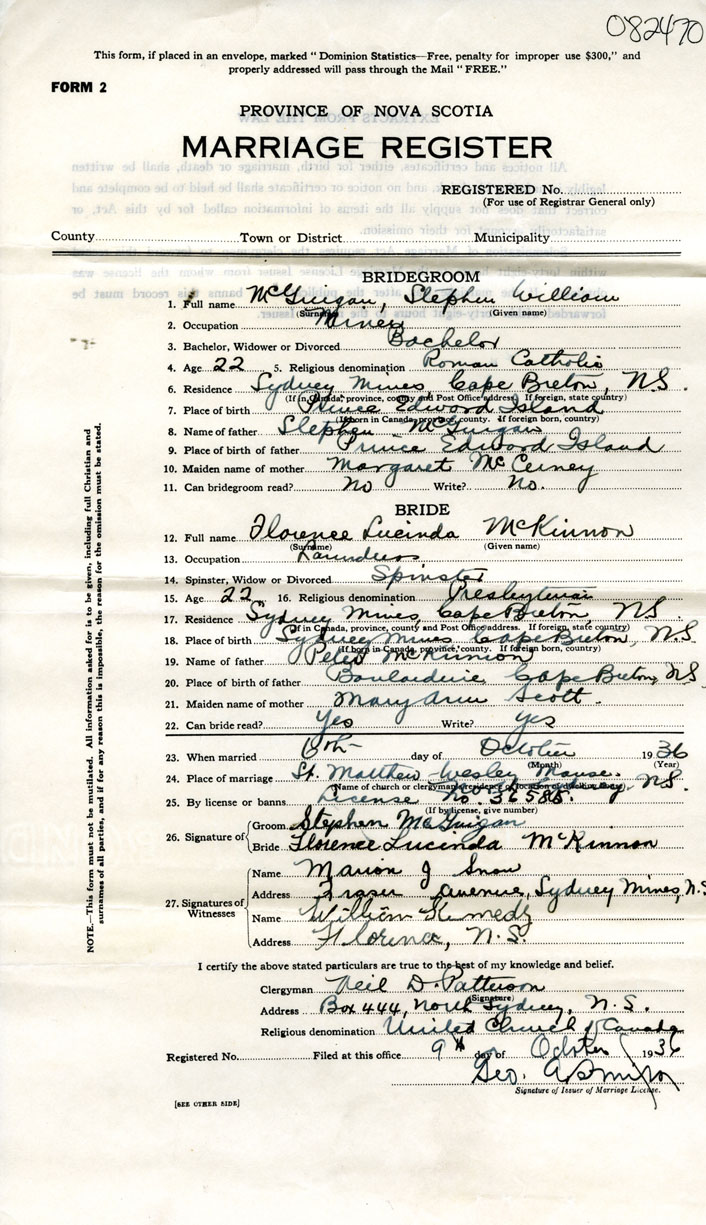 082470
This form, if placed in an envelope, marked "Dominion Statistics—Free, penalty for improper use $300," and
properly addressed will pass through the Mail "FREE."
FORM 2
PROVINCE OF NOVA SCOTIA
MARRIAGE REGISTER
REGISTERED No.
(For use of Registrar General only)
County Town or District Municipality
BRIDEGROOM
1. Full name McGuigan, Stephen William
(Surname) (Given name)
2. Occupation Miner
3. Bachelor, Widower or Divorced Bachelor
4. Age 22 5. Religious denomination Roman Catholic
6. Residence Sydney Mines, Cape Breton, N.S.
(If in Canada, province, county and Post Office address. If foreign, state country)
7. Place of birth Prince Edword Island
(If born in Canada, province, county. If foreign born, country)
8. Name of father Stephen McGuigan
9. Place of birth of father Prince Edword Island
10. Maiden name of mother Margaret
11. Can bridegroom read? No Write? No.
BRIDE
12. Full name Florence Lucinda McKinnon
(Surname) (Given name)
13. Occupation
14. Spinster, Widow or Divorced Spinster
15. Age 22 16. Religious denomination Presbyterian
17. Residence Sydney Mines, Cape Breton, N.S.
(If in Canada, province, county and Post Office address. If foreign, state country)
18. Place of birth Sydney Mines Cape Breton, N.S.
(If born in Canada, province, county. If foreign born, country)
19. Name of father Peter McKinnon
20. Place of birth of father Boularderie Cape Breton, NS
21. Maiden name of mother Mary Ann Scott
22. Can bride read? Yes Write? Yes
23. When married day of October 1936
(Month) (Year)
24. Place of marriage St. Matthew Wesley Manse. N.S.
(Name of church or clergyman's residence or location of dwelling)
25. By license or banns License No. 36585.
(If by license, give number)
26. Signature of Groom Stephen McGuigan
Bride Florence Lucinda McKinnon
27. Signatures of Witnesses
Name Marion J Snow
Address Fraser Avenue, Sydney Mines, N.S.
Name William Kennedy
Address Florence, N.S.
I certify the above stated particulars are true to the best of my knowledge and belief.
Clergyman Neil D. Patterson
(Signature)
Address Box 444, North Sydney, N.S.
Religious denomination United Church of Canada
Registered No. Filed at this office 9th day of October 1936
Geo. A
Signature of Issuer of Marriage License.
[SEE OTHER SIDE]
NOTE.—This form must not be mutilated. All information asked for is to be given, including full Christian and
surnames of all parties, and if for any reason this is impossible, the reason for the omission must be stated.